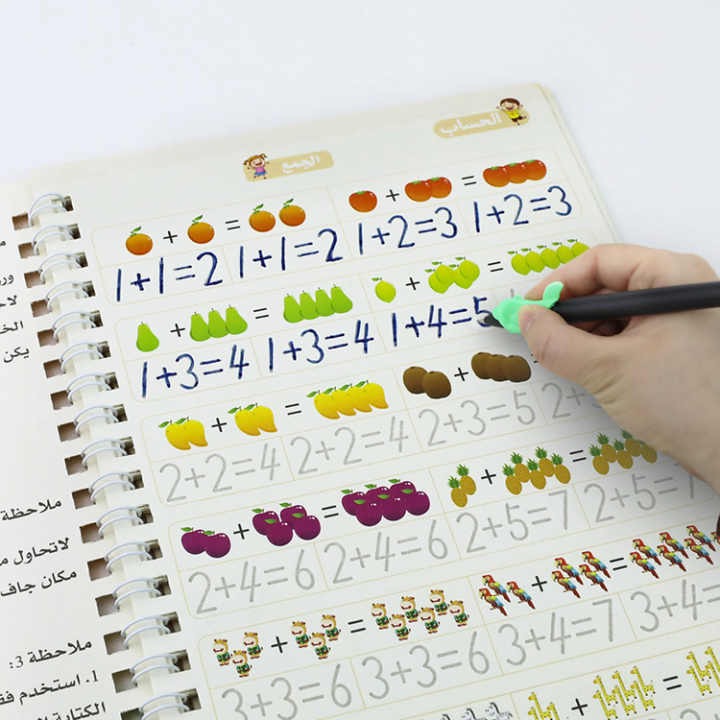 الحساب
الجمع
+ = + =
1+1=2 1+1=2 1+2=3 1+2=3
+ = + =
1+3=4 1+3=4 1+4=5
+ = +
2+2=4 2+2=4 2+3=5
+ = + =
2+4=6 2+4=6 2+5=7 2+5=7
+ = + =
3+3=6 3+3=6 3+4=7 3+4=
+ =
ملاحظة
لاتحاول
مكان جاف
ملاحظة 3:
1. استخدم
الكتابة
يكن